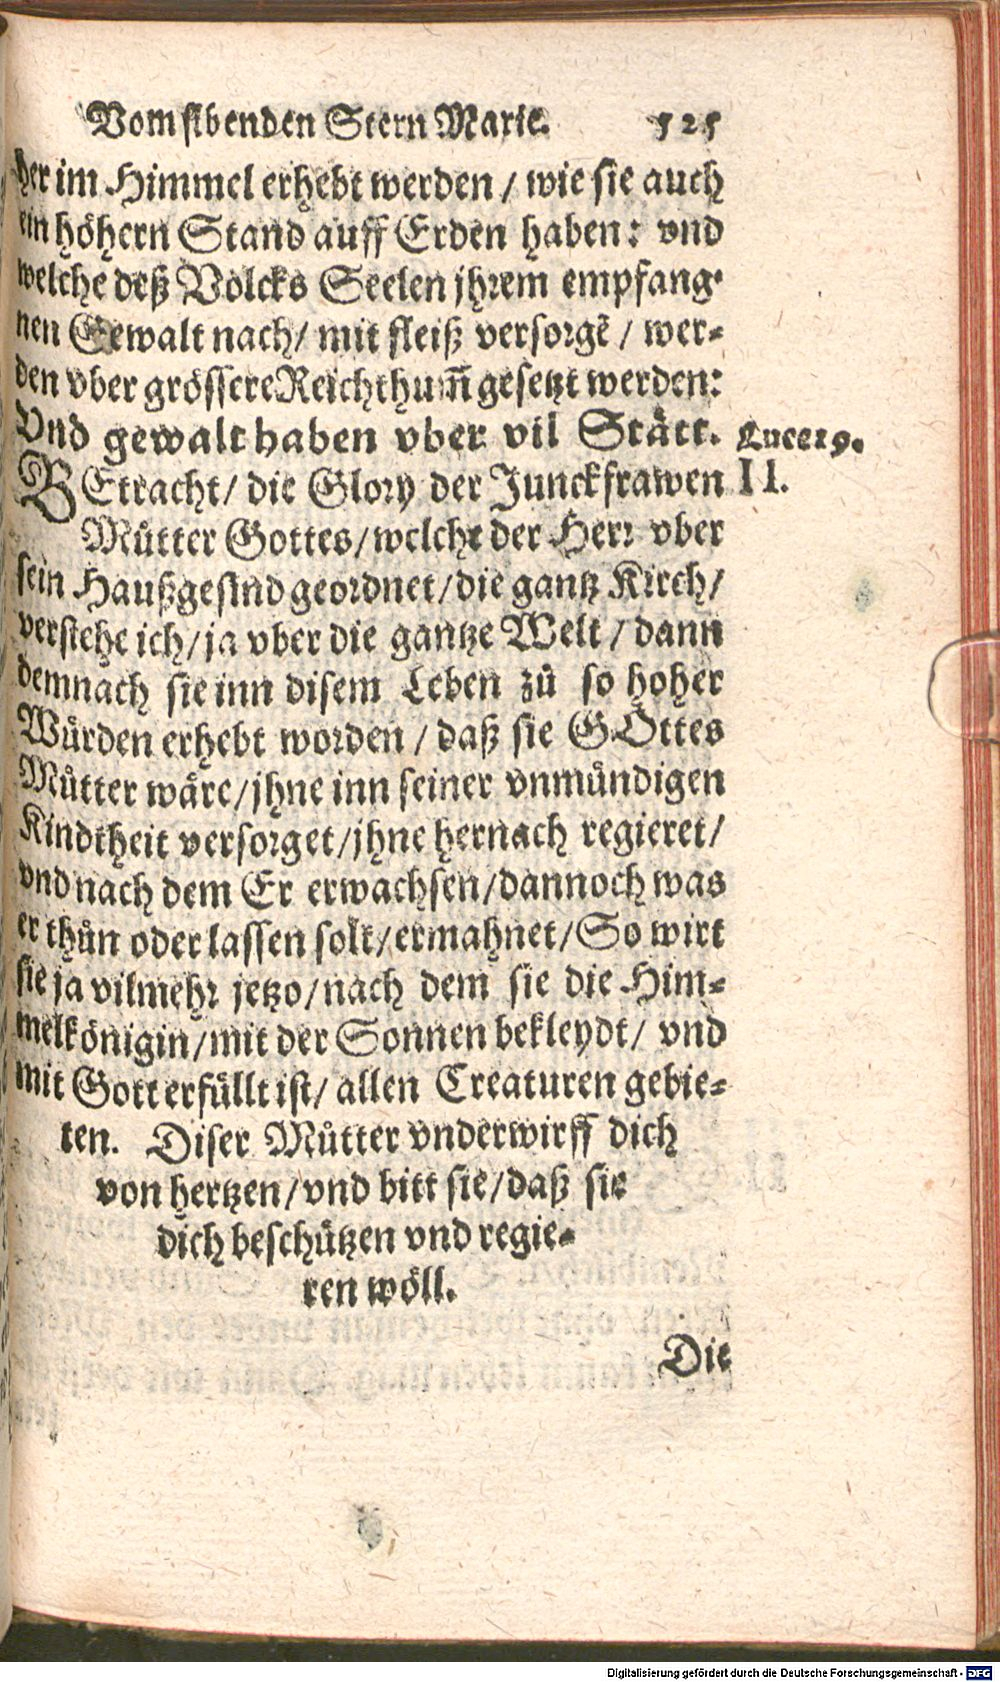 Vom sibenden Stern Marie. 525
her im Himmel erhebt werden / wie sie auch
ein höhern Stand auff Erden haben: vnd
welche deß Volcks Seelen jhrem empfang-
nen Gewalt nach / mit fleiß versorgē / wer-
den vber grössere Reichthum̄ gesetzt werden:
Vnd gewalt haben vber vil Stätt. Luce 19.
BEtracht / die Glory der Junckfrawen II.
Můtter Gottes / welche der Herr vber
sein Haußgesind geordnet / die gantz Kirch /
verstehe ich / ja vber die gantze Welt / dann
demnach sie inn disem Leben zů so hoher
Würden erhebt worden / daß sie GOttes
Můtter wäre / jhne inn seiner vnmündigen
Kindtheit versorget / jhne hernach regieret /
vnd nach dem Er erwachsen / dannoch was
er thůn oder lassen solt / ermahnet / So wirt
sie ja vilmehr jetzo / nach dem sie die Him-
melkönigin / mit der Sonnen bekleydt / vnd
mit Gott erfüllt ist / allen Creaturen gebie-
ten. Diser Můtter vnderwirff dich
von hertzen / vnd bitt sie / daß sie
dich beschützen vnd regie-
ren wöll.
Die
Digitalisierung gefördert durch die Deutsche Forschungsgemeinschaft - DFG